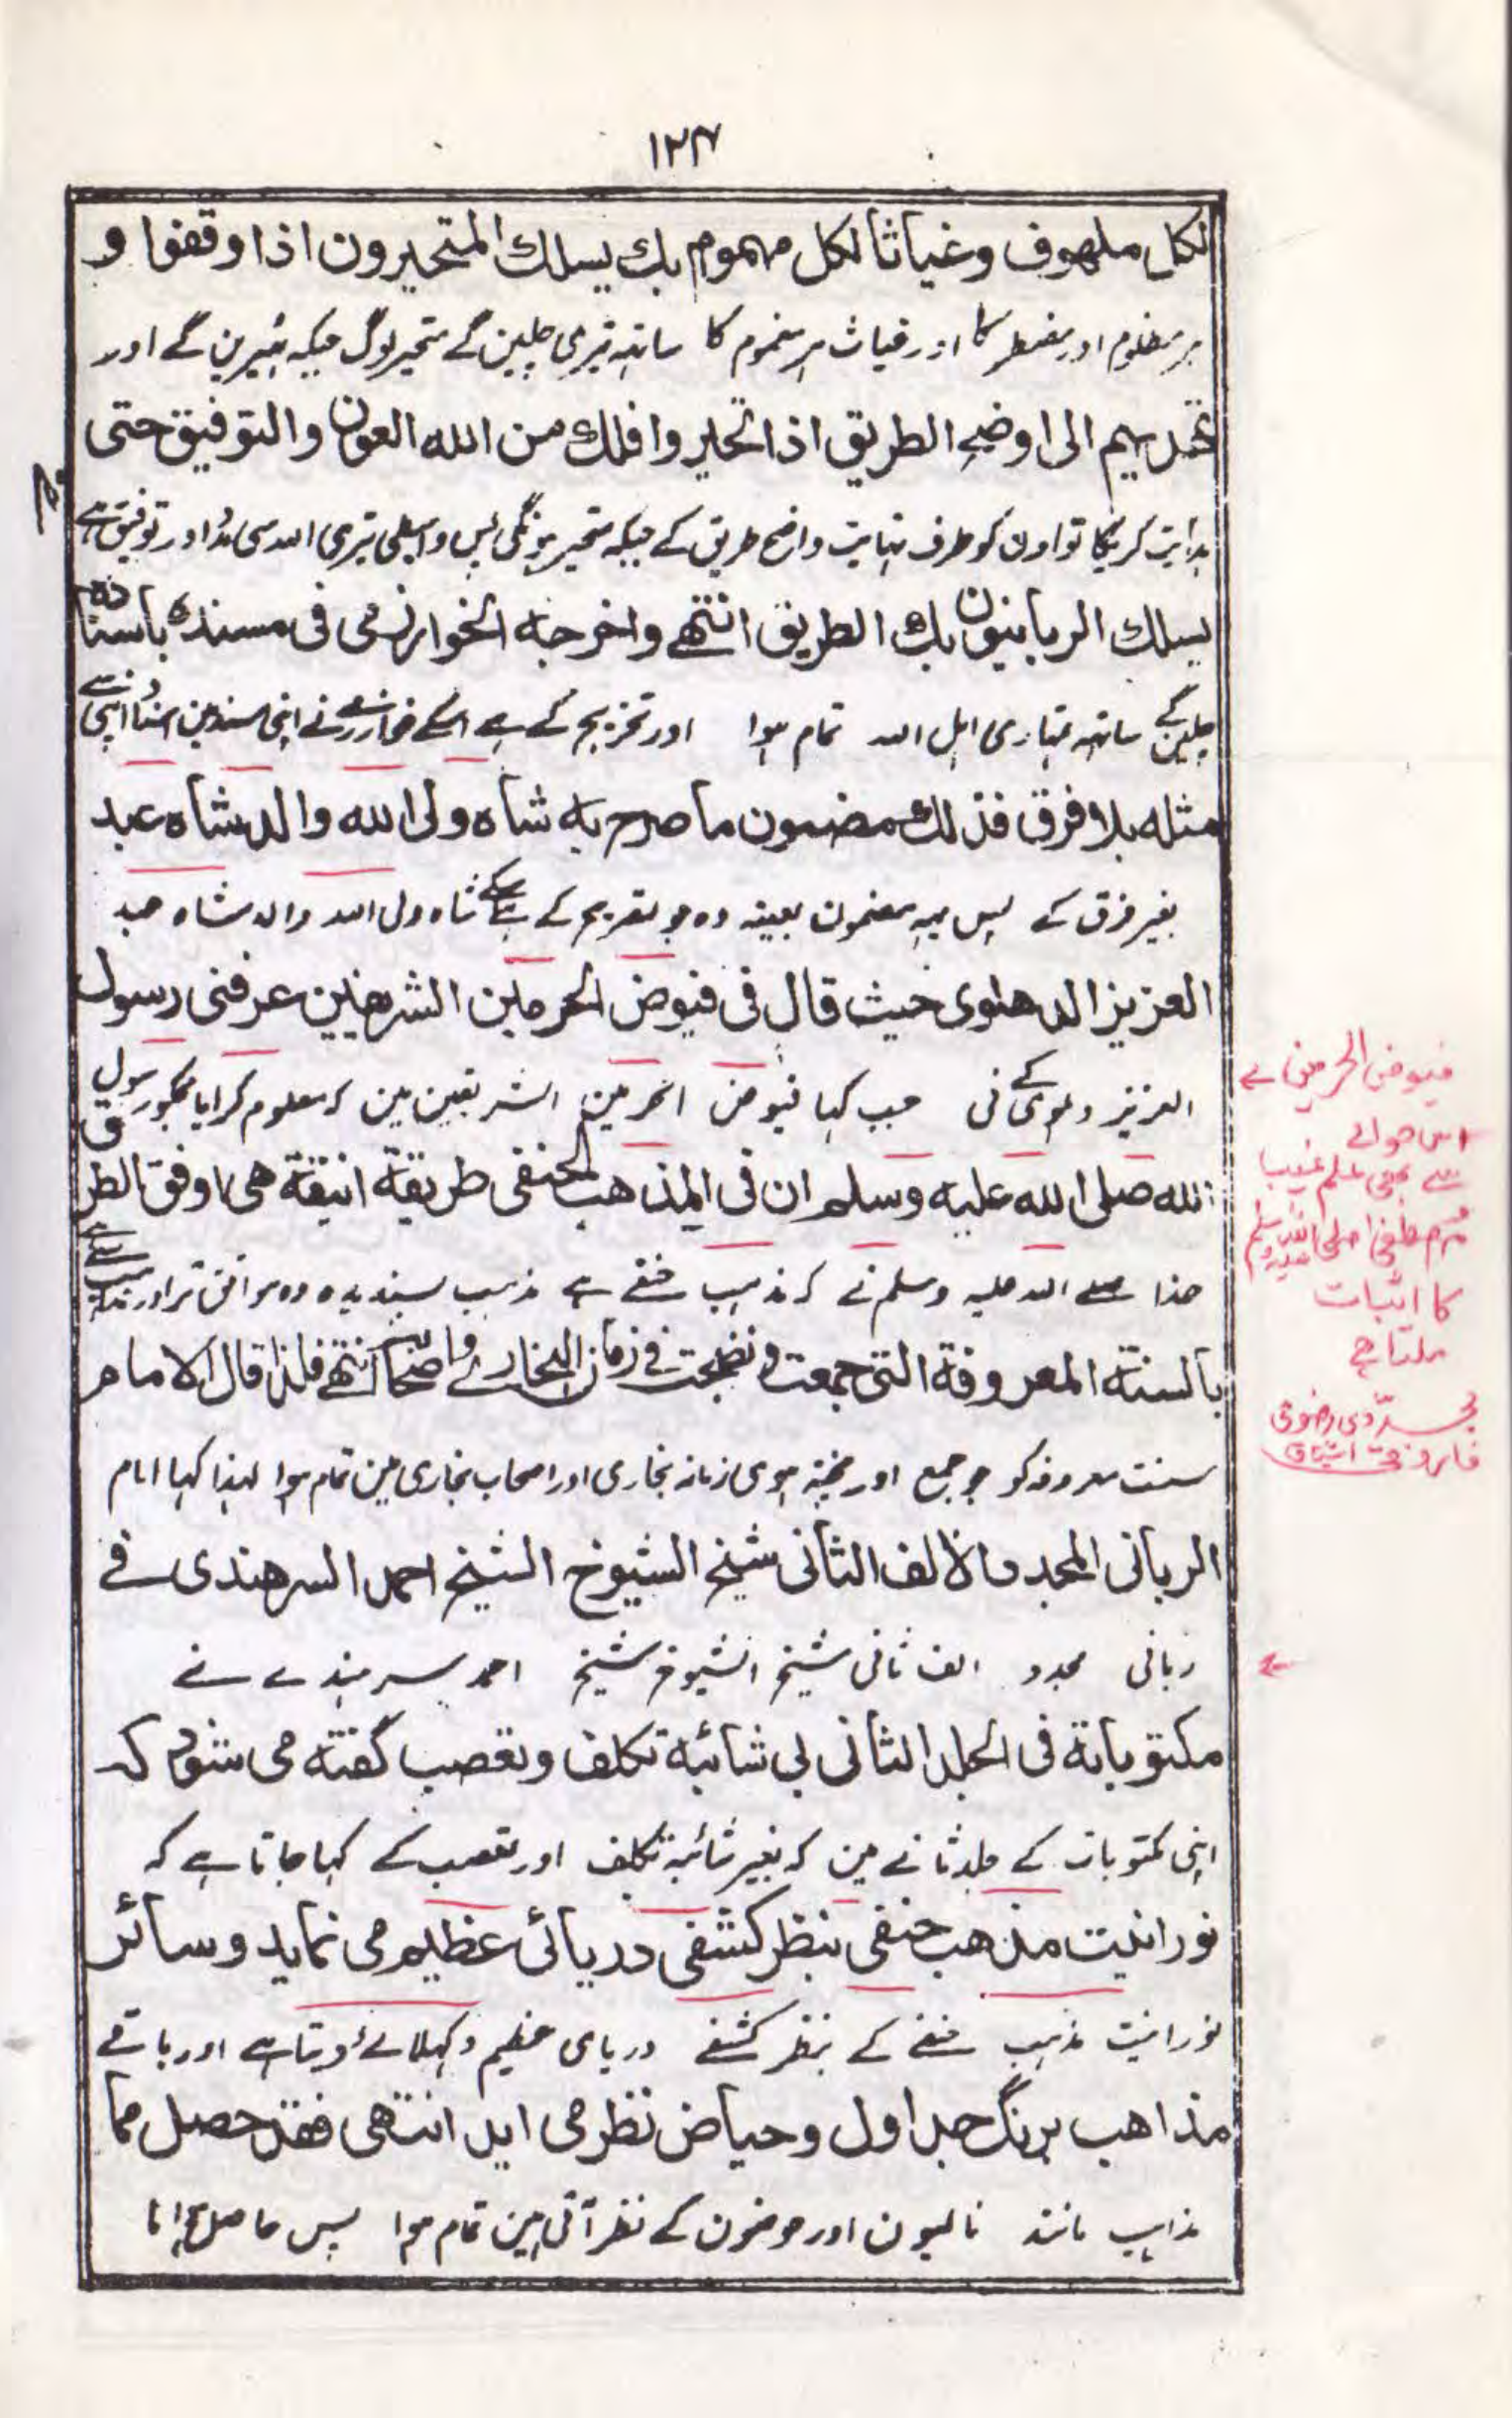 ۱۲۴
لكل ملهوف وغياثا لكل مهموم بك يسلك المتحيرون اذا وقفوا و
ہر مظلوم اور مضطر کا اور غیاث ہر مغموم کا ساتہہ تیری چلین گے متحیر لوگ جبکہ ٹہیرین گے اور
تهديهم الى اوضح الطريق اذا تحيروا فلك من الله العون والتوفيق حتى
ہدایت کریگا تو اون کو طرف نہایت واضح طریق کے جبکہ متحیر ہونگی پس واسطی تیری اللہ سی مدد اور توفیق ہے
يسلك الربانيون بك الطريق انتهے واخرجه الخوارزمى فى مسنده باسناده
چلین گے ساتہہ تمہاری اہل اللہ تمام ہوا اور تخریج کے ہے اسکے خوارزمے نے اپنی مسند مین اسناد اپنی سے
مثله بلا فرق فذلك مضمون ما صرح به شاه ولى الله والد شاه عبد
بغیر فرق کے پس یہہ مضمون بعینہ وہ جو تصریح کے ہے اسکے شاہ ولی اللہ والد شاہ عبد
العزيز الدهلوى حيث قال فى فيوض الحرمين الشريفين عرفنى رسول
العزیز دہلوی کے نی جب کہا فیوض الحرمین الشریفین مین کہ معلوم کرایا مجکو رسول
الله صلى الله عليه وسلم ان فى المذهب الحنفى طريقة انيقة هى اوفق الطرق
خدا صلے اللہ علیہ وسلم نے کہ مذہب حنفے ہے مذہب پسندیدہ وہ موافق تر اور سب سے
بالسنة المعروفة التى جمعت ونضجت فے زمان البخارے واصحابه انتهے فلذا قال الامام
سنت معروفہ کو جو جمع اور پختہ ہوی زمانہ بخاری اور اصحاب بخاری مین تمام ہوا لہذا کہا امام
الربانى المجدد الالف الثانى شيخ الشيوخ الشيخ احمد السرهندى فے
ربانی مجدد الف ثانی شیخ الشیوخ شیخ احمد سرہندے نے
مكتوباته فى الجلد الثانى بی شائبه تکلف وتعصب گفته می شود که
اپنی مکتوبات کے جلد ثانے مین کہ بغیر شائبہ تکلف اور تعصب کے کہا جاتا ہے کہ
نورانیت مذهب حنفی بنظر کشفی دریائی عظیم می نماید وسائر
نورانیت مذہب حنفے کے بنظر کشفے دریای عظیم دکہلائے دیتا ہے اور باقے
مذاهب برنگ جداول وحیاض نظر می اید انتهى فقد حصل مما
مذاہب مانند نالیون اور حوضون کے نظر آتی ہین تمام ہوا پس حاصل ہوا
فیوض الحرمین کے
اس حوالے
سے بھی علم غیب
مصطفیٰ صلی اللہ علیہ وسلم
کا اثبات
ملتا ہے
مجددی رضوی
فاروقی اشتیاق